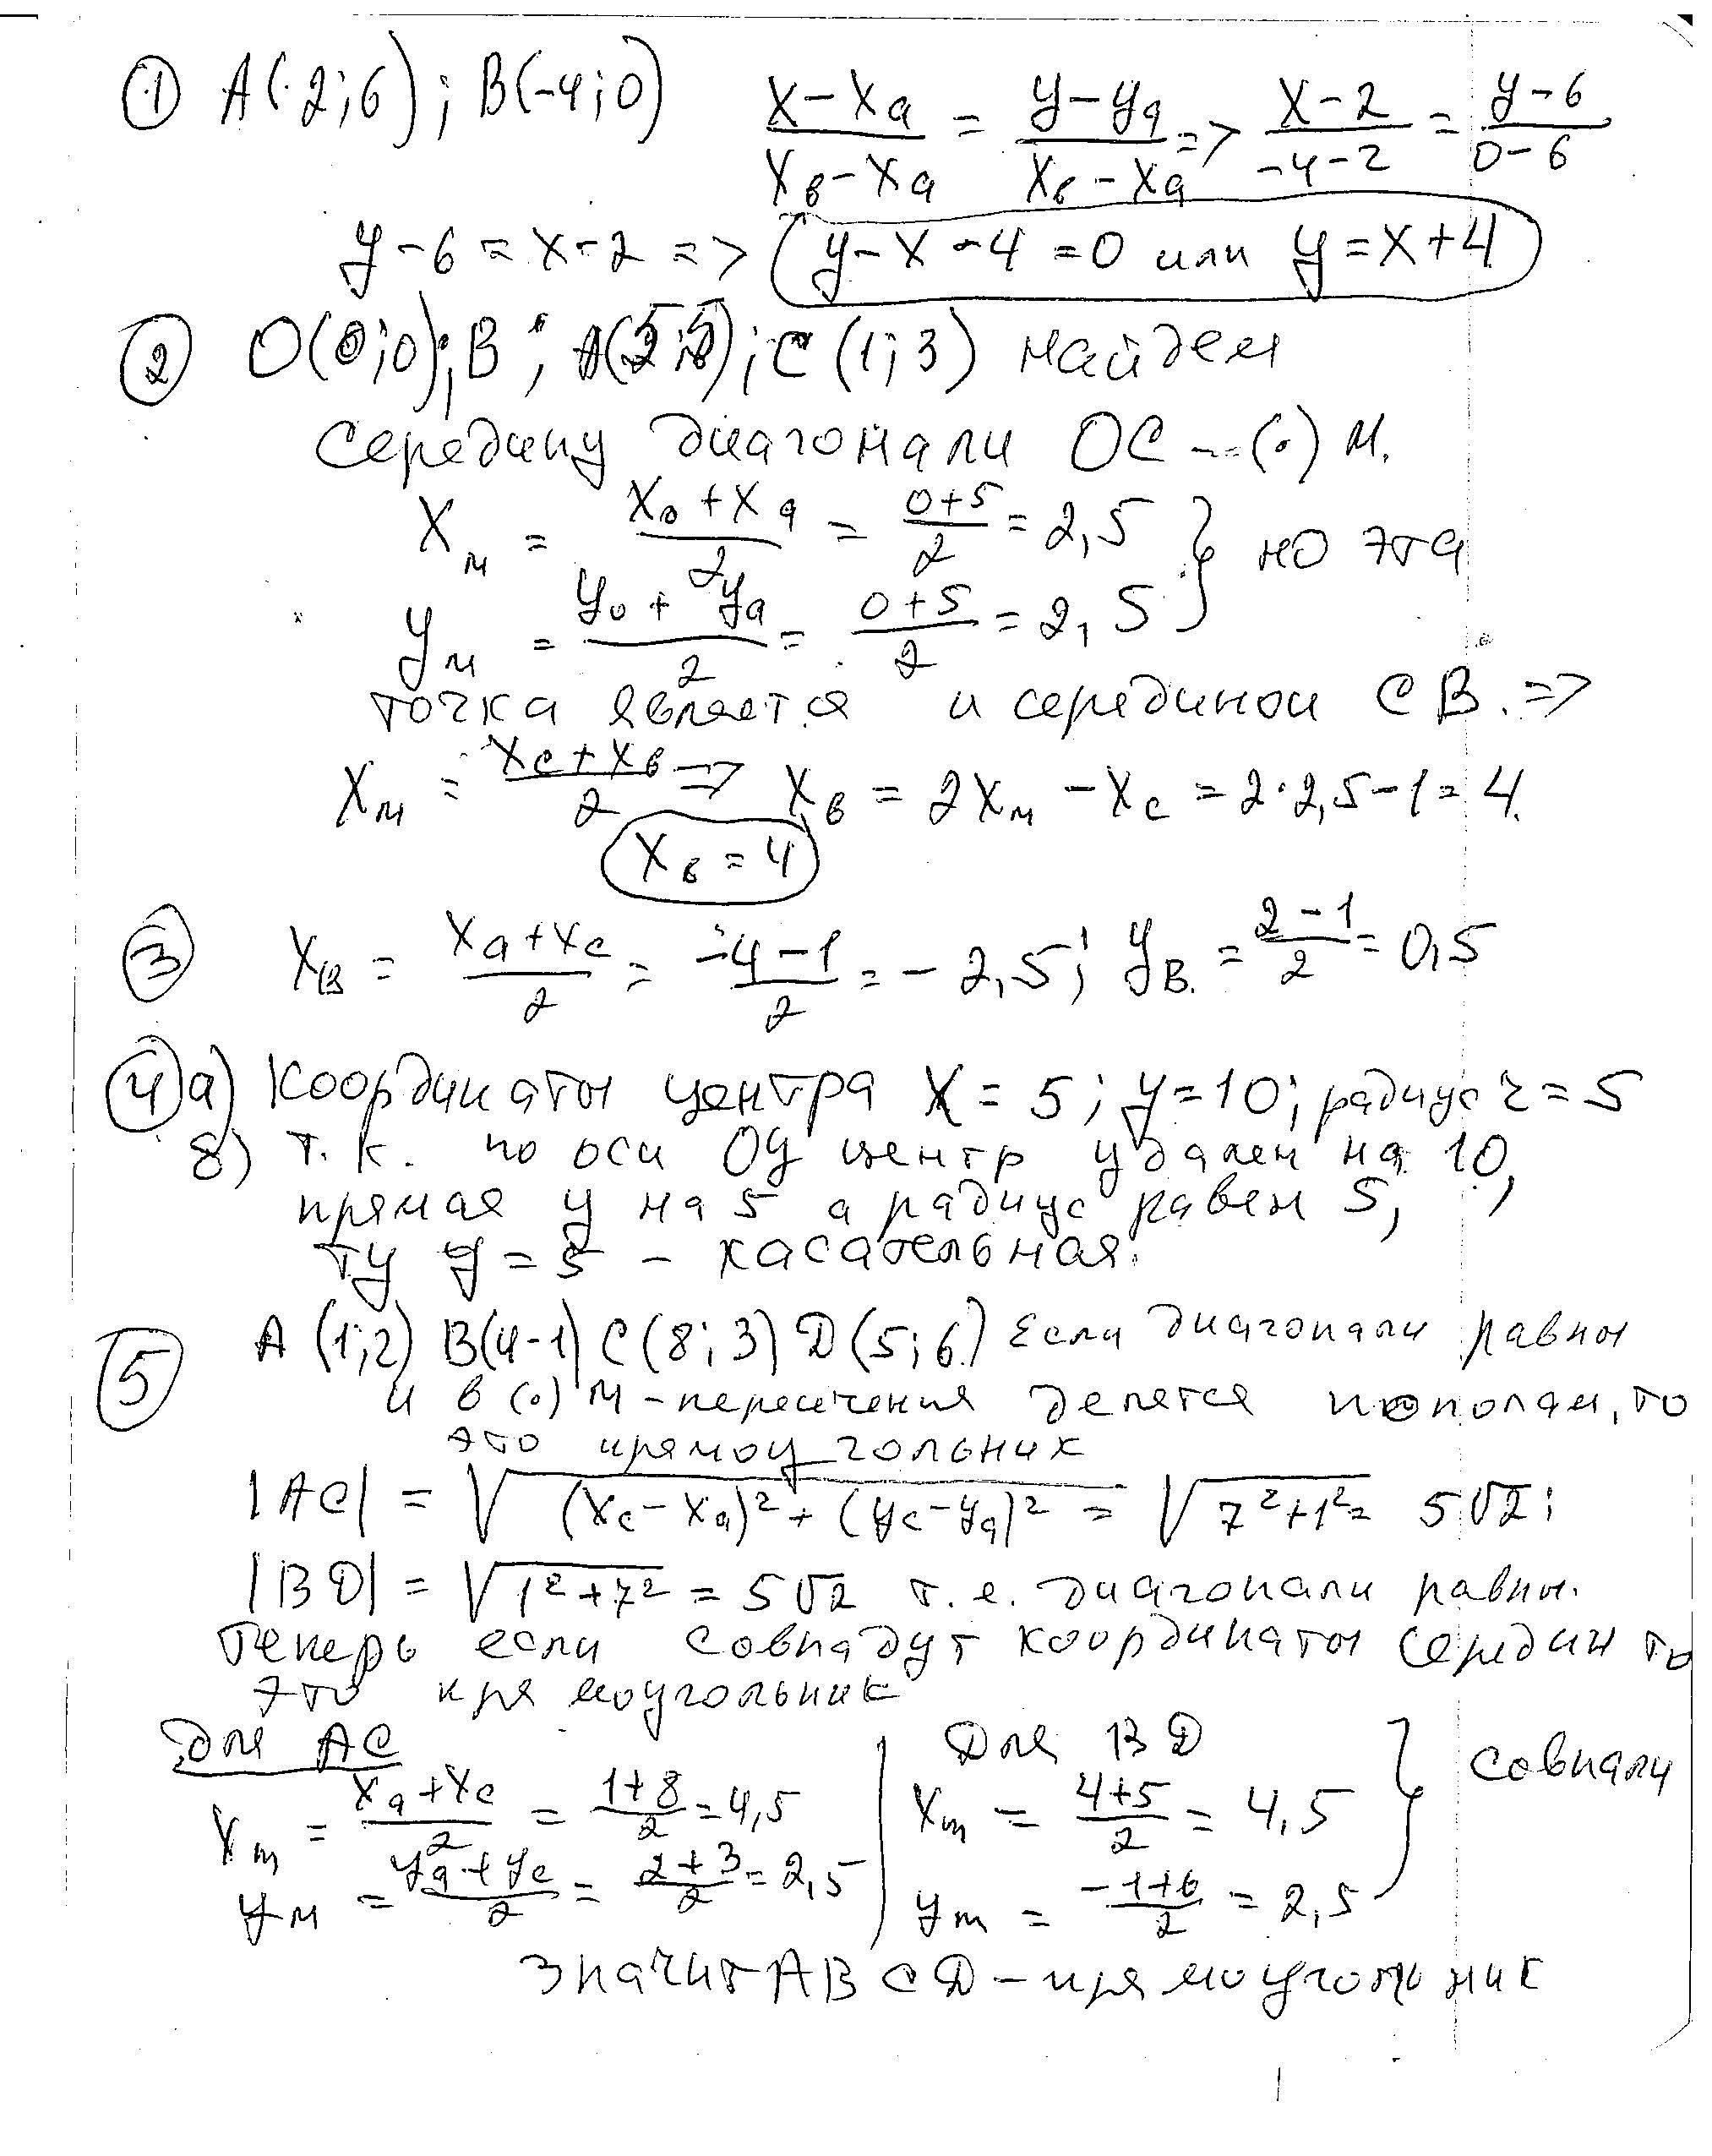 ① A(2;6); B(-4;0) (x-xa)/(xв-xa) = (y-ya)/(xв-xa) => (x-2)/(-4-2) = (y-6)/(0-6)
y-6 = x-2 => y-x-4=0 или y=x+4
② O(0;0); B; A(5;5); C(1;3) найдем
середину диагонали OC -- (·) М.
xм = (xо+xa)/2 = (0+5)/2 = 2,5 } но эта
yм = (yо+ya)/2 = (0+5)/2 = 2,5
точка является и серединой CB. =>
xм = (xc+xв)/2 => xв = 2xм - xc = 2·2,5-1 = 4.
xв = 4
③ xB = (xa+xc)/2 = (-4-1)/2 = -2,5; yB. = (2-1)/2 = 0,5
④ а) Координаты центра x = 5; y=10; радиус r = 5
в) т.к. по оси ОУ центр удален на 10,
прямая y на 5 а радиус равен 5,
ту y = 5 - касательная.
⑤ A (1;2) B(4-1) C(8;3) D(5;6) Если диагонали равны
и в (·) М - пересечения делятся пополам, то
это прямоугольник
|AC| = √((xc-xa)²+(yc-ya)²) = √(7²+1²) = 5√2;
|BD| = √(1²+7²) = 5√2 т.е. диагонали равны.
Теперь если совпадут координаты середин то
это прямоугольник
Для AC | Для BD } совпали
xm = (xa+xc)/2 = (1+8)/2 = 4,5 | xm = (4+5)/2 = 4,5
yм = (ya+yc)/2 = (2+3)/2 = 2,5 | ym = (-1+6)/2 = 2,5
значит ABCD - прямоугольник